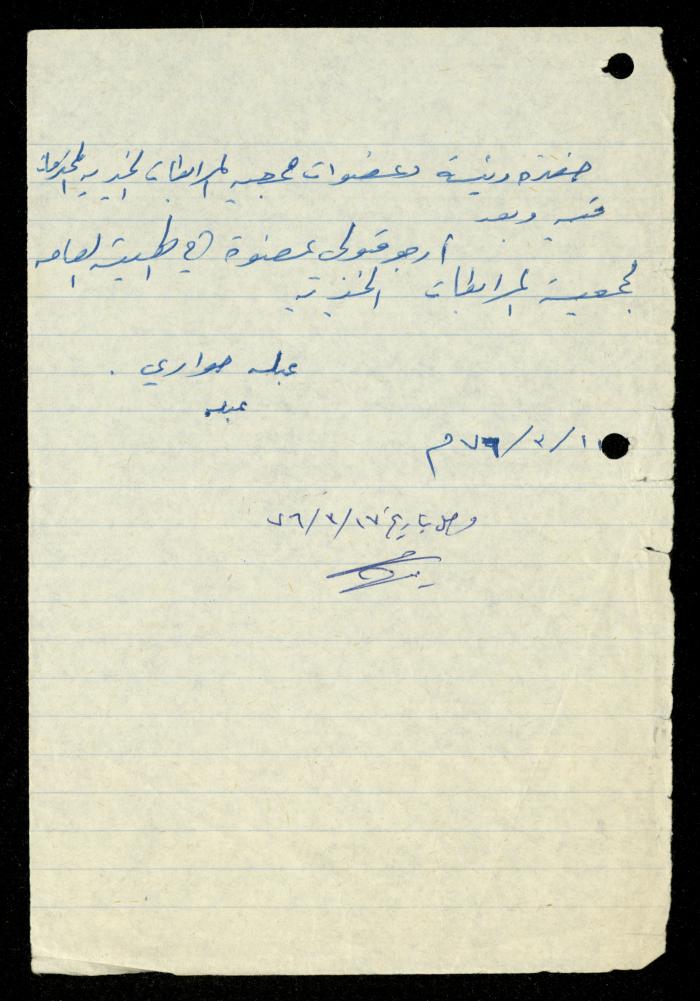 حضرة رئيسة وعضوات جمعية المرابطات الخيرية المحترمات
تحية وبعد
أرجو قبولي عضوة في الهيئة العامه
لجمعية المرابطات الخيرية
عبله حواري .
عبله
٧٦/٣/١ م
وصل بتاريخ ٧٦/٣/١٧